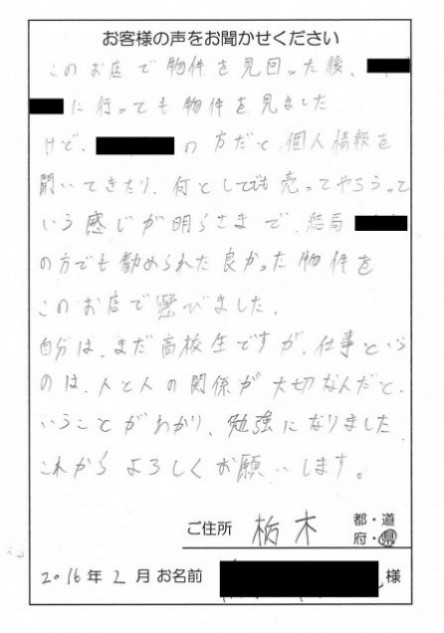 お客様の声をお聞かせください
このお店で物件を見回った後、
に行っても物件を見ました
けど、の方だと、個人情報を
聞いてきたり、何としてでも売ってやろうって
いう感じが明らさまで、結局
の方でも勧められた良かった物件を
このお店で選びました。
自分は、まだ高校生ですが、仕事という
のは、人と人の関係が大切なんだと、
いうことがわかり、勉強になりました。
これからよろしくお願いします。
ご住所 栃木 都・道
府・県
2016年2月 お名前 様